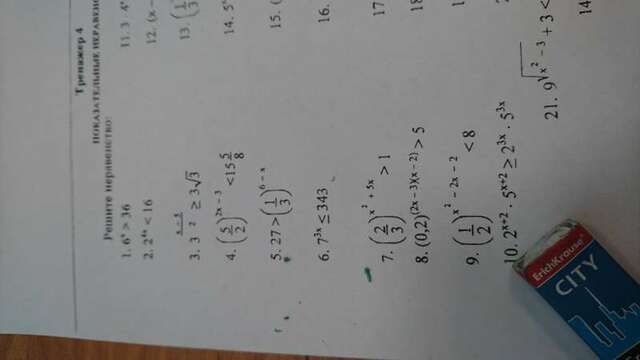 Тренажер 4
ПОКАЗАТЕЛЬНЫЕ
Решите неравенство:
1. 6ˣ > 36
2. 2⁴ˣ < 16
3. 3 2 ≥ 3√3
4. (5/2)^(2x − 3) < 15 5/8
5. 27 > (1/3)^(6 − x)
6. 7³ˣ ≤ 343
7. (2/3)^(x² + 5x) > 1
8. (0,2)^((2x − 3)(x − 2)) > 5
9. (1/2)^(x² − 2x − 2) < 8
10. 2ˣ⁺² · 5ˣ⁺² ≥ 2³ˣ · 5³ˣ
11. 3 · 4ˣ
12. (x −
13. (1/3)
14. 5ˣ
15. (
16.
17
18
14
21. 9^√(x² − 3) + 3 <
ErichKrause
CITY